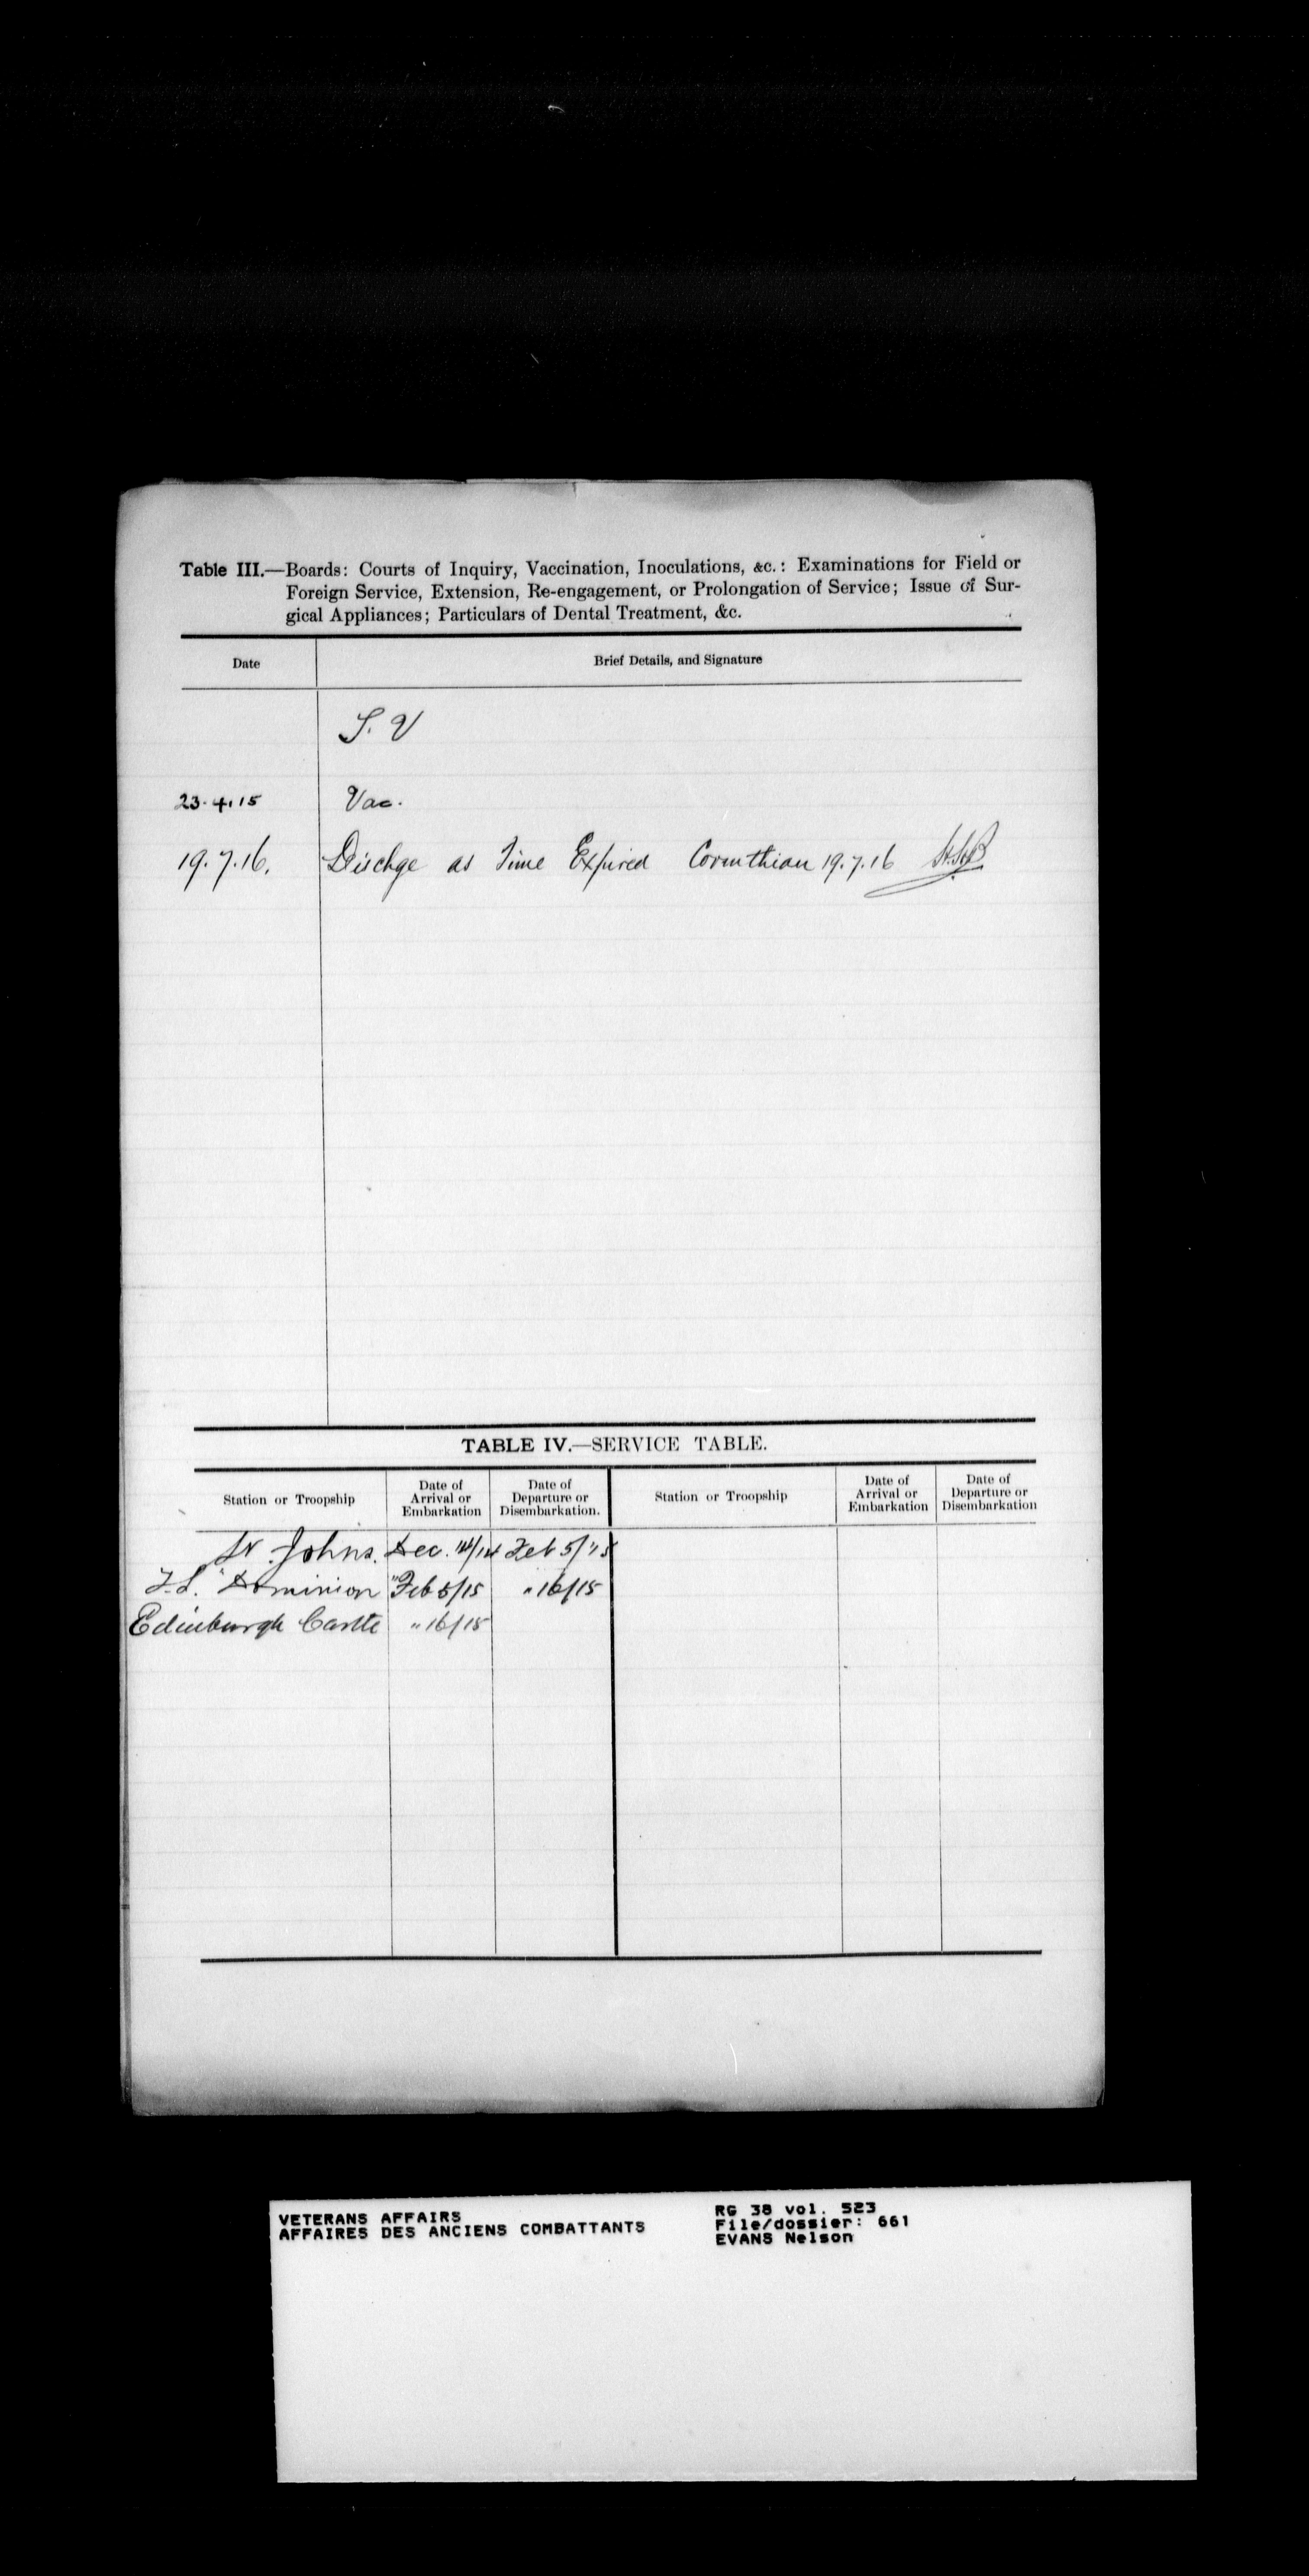 Table III.—Boards: Courts of Inquiry, Vaccination, Inoculations, &c.: Examinations for Field or
Foreign Service, Extension, Re-engagement, or Prolongation of Service; Issue of Sur-
gical Appliances; Particulars of Dental Treatment, &c.
Date Brief Details, and Signature
S. V
23.4.15 Vac.
19.7.16. Dischge as Time Expired Corinthian 19.7.16
TABLE IV.—SERVICE TABLE.
Station or Troopship Date of Arrival or Embarkation Date of Departure or Disembarkation. Station or Troopship Date of Arrival or Embarkation Date of Departure or Disembarkation
St. Johns. Dec. 14/14 Feb 5/15
"Dominion" Feb 5/15 " 16/15
Edinburgh Castle " 16/15
VETERANS AFFAIRS RG 38 vol. 523
AFFAIRES DES ANCIENS COMBATTANTS File/dossier: 661
EVANS Nelson